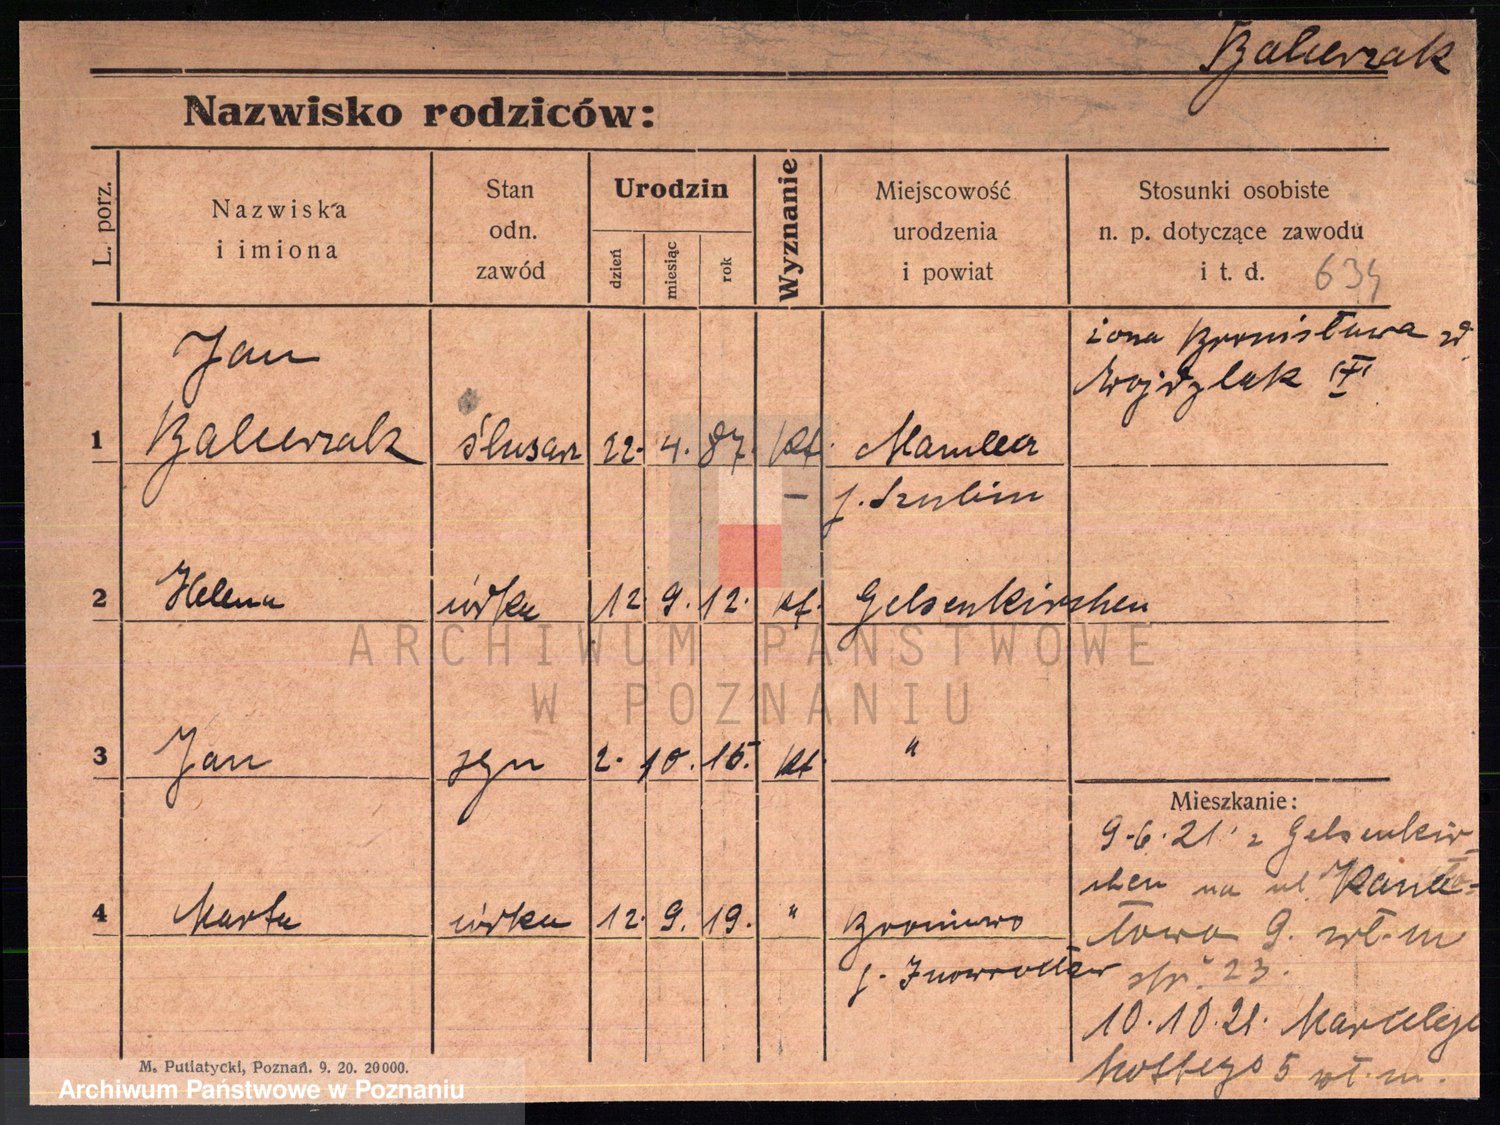 Balcerzak
Nazwisko rodziców:
L. porz.
Nazwiska
i imiona
Stan
odn.
zawód
Urodzin
dzień
miesiąc
rok
Wyznanie
Miejscowość
urodzenia
i powiat
Stosunki osobiste
n. p. dotyczące zawodu
i t. d.
634
żona Bronisława zd
Wojdzlak
Jan
1 Balcerzak ślusarz 22. 4. 87. kt. Mamlicz
p. Szubin
2 Helena córka 12 9. 12. kt. Gelsenkirchen
3 Jan syn 2. 10. 15. kt. "
Mieszkanie:
9.6.21 z Gelsenkir-
chen na ul. Kana-
łowa 9. wł. m
str. 23.
10.10.21. Marcelego
Mottego 5 wł. m.
4 Marta córka 12. 9. 19. " Broniewo
p. Inowrocław
M. Putiatycki, Poznań. 9. 20. 20000.
ARCHIWUM PAŃSTWOWE
W POZNANIU
Archiwum Państwowe w Poznaniu